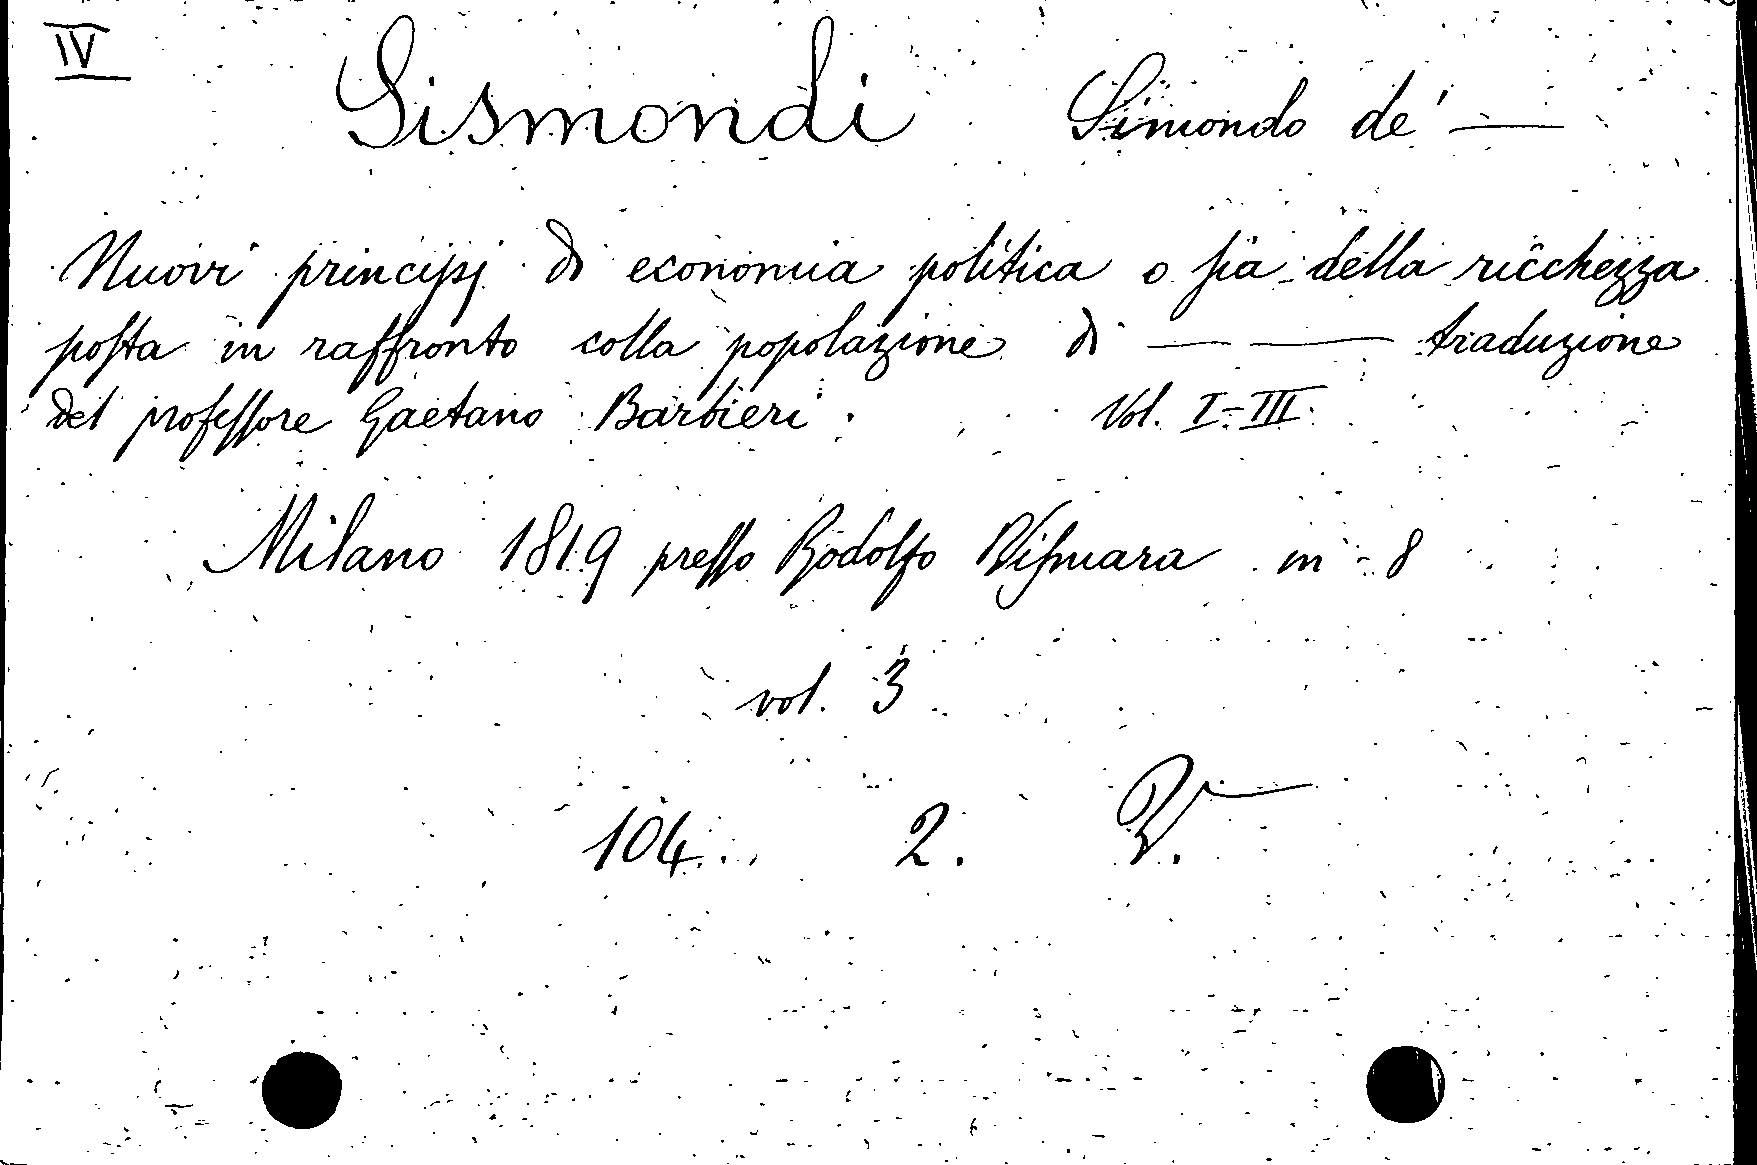 IV
Sismondi Simondo de' —
Nuovi principj di economia politica o sia della ricchezza
posta in raffronto colla popolazione di — — traduzione
del professore Gaetano Barbieri. Vol. I-III.
Milano 1819 presso Rodolfo Vismara in-8
vol. 3
104. 2.